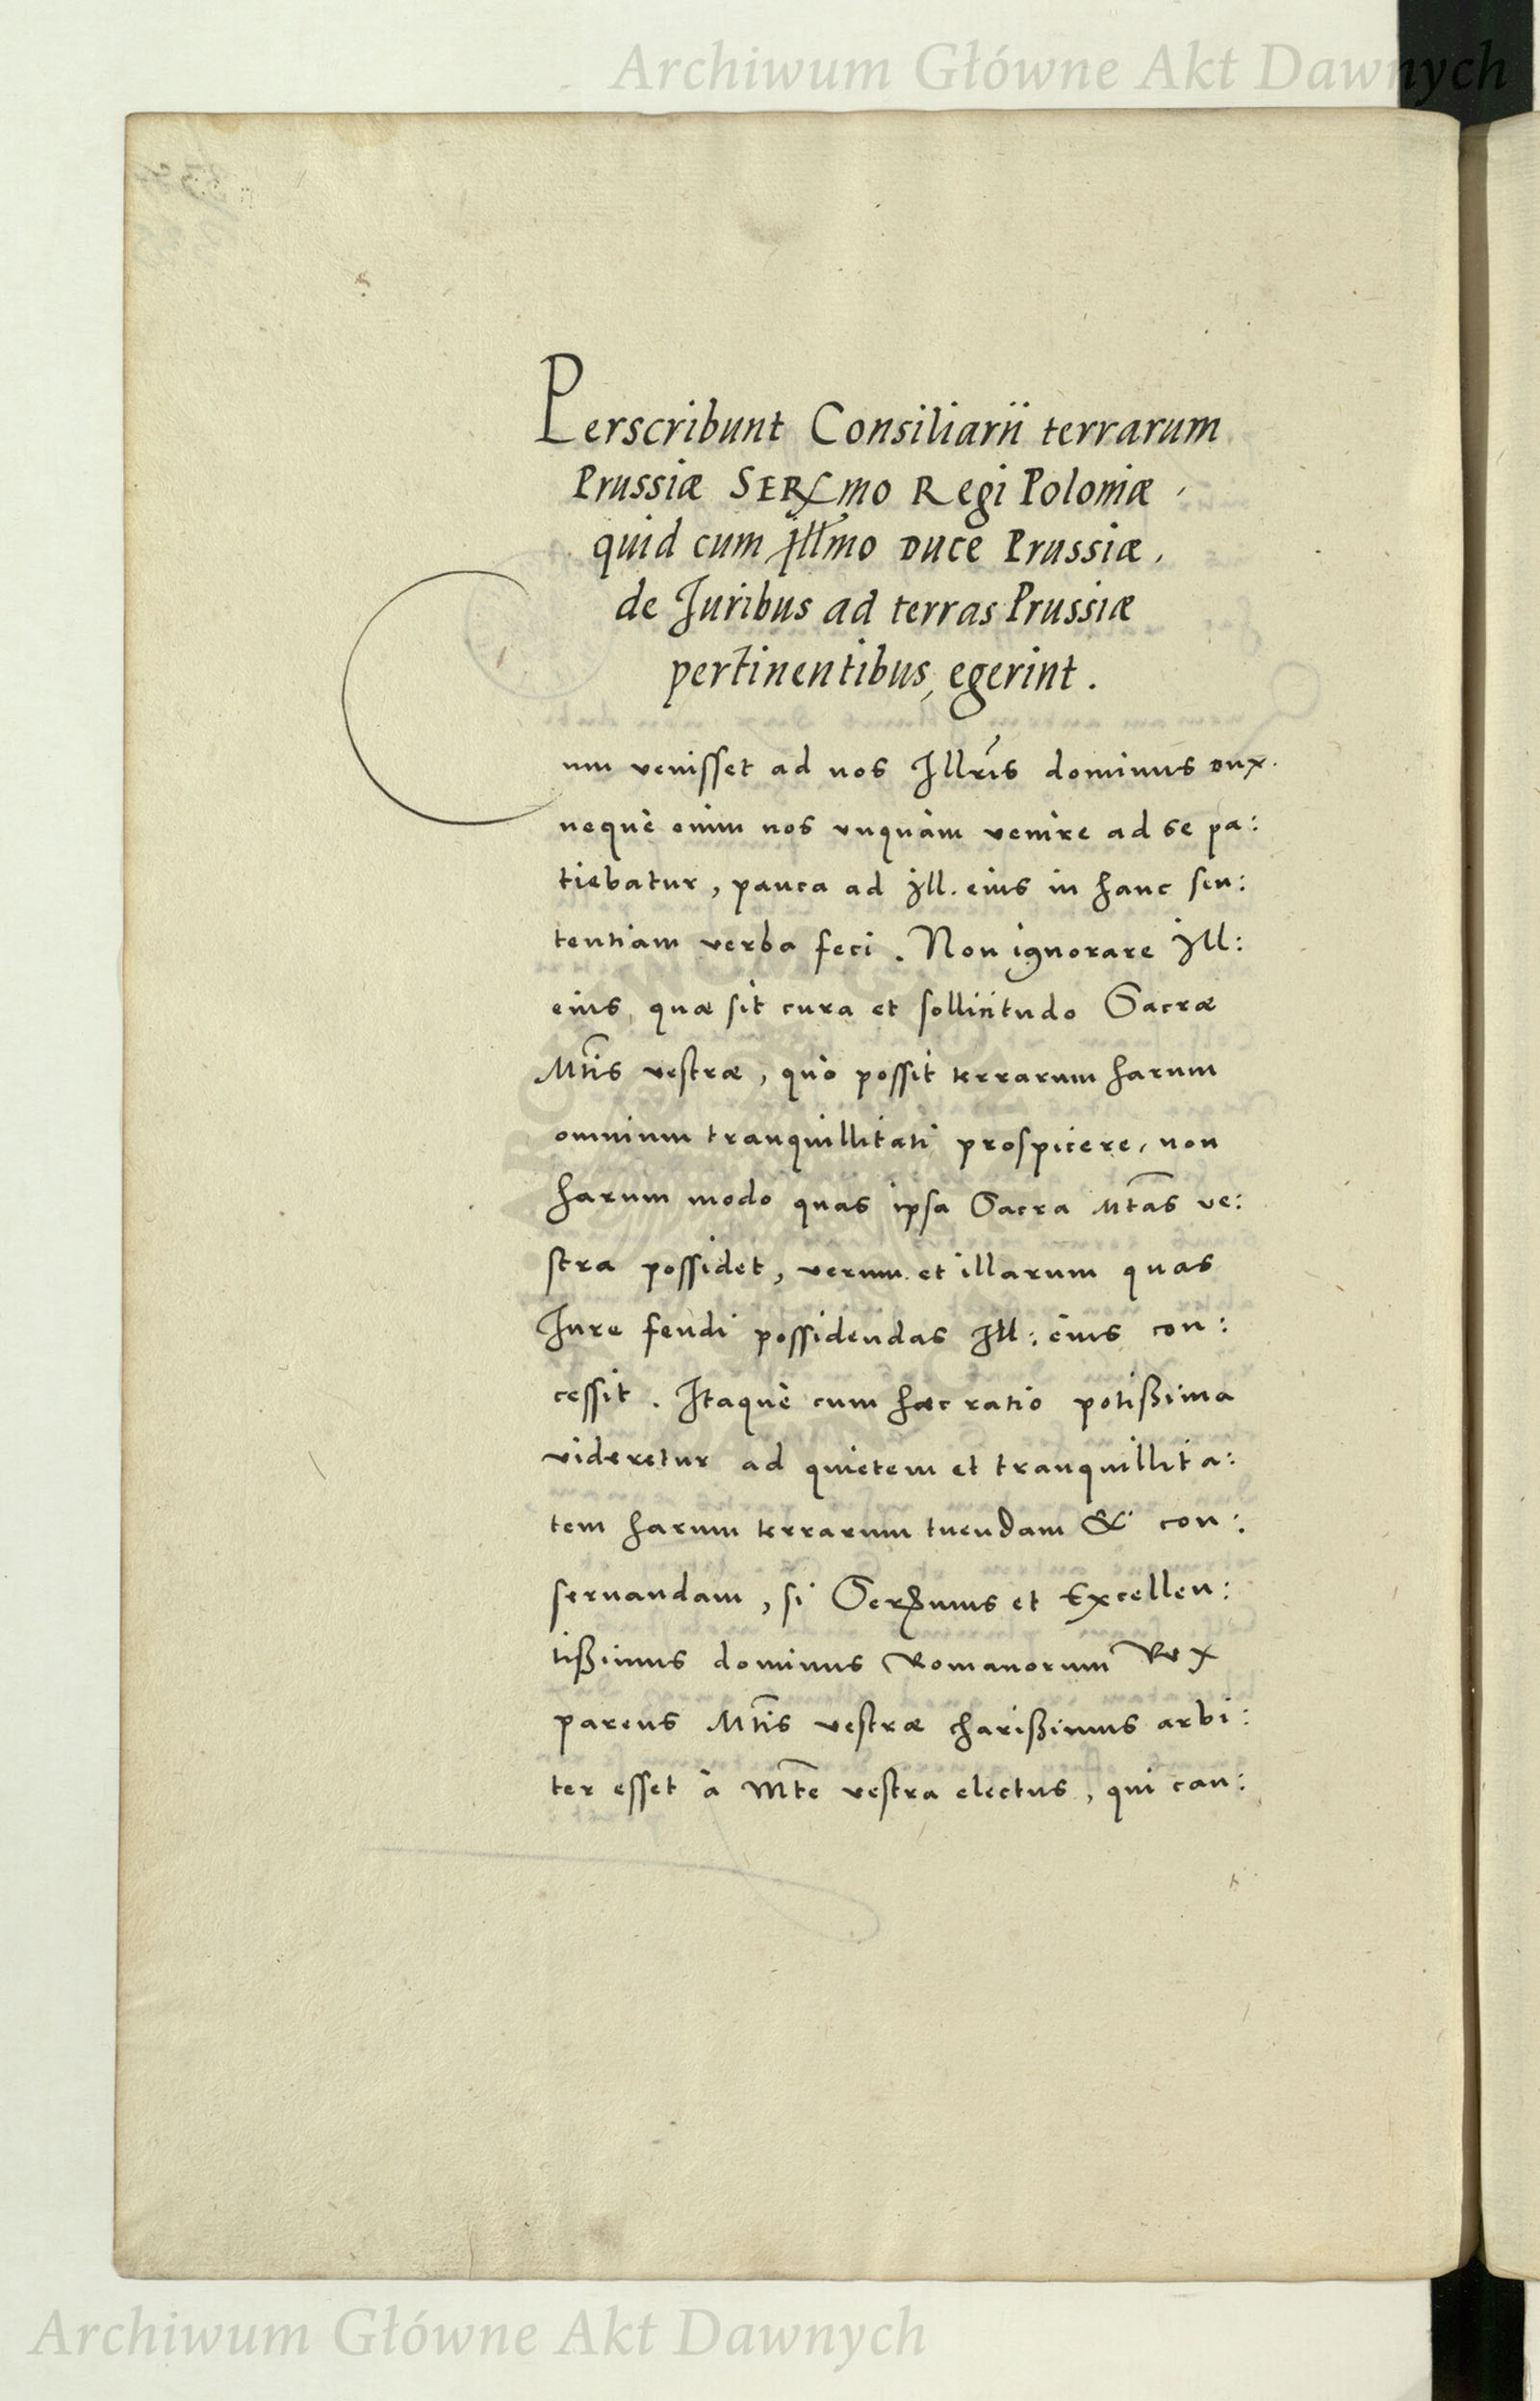 Archiwum Główne Akt Dawnych
Perscribunt Consiliarii terrarum
Prussiæ SERmo Regi Poloniæ,
quid cum Illmo Duce Prussiæ,
de Juribus ad terras Prussiæ
pertinentibus, egerint.
Cum venisset ad nos Illris dominus Dux.
nequè enim nos vnquàm venire ad se pa:
tiebatur, pauca ad Ill. eius in hanc sen:
tentiam verba feci. Non ignorare Ill:
eius, quæ sit cura et sollicitudo Sacræ
Mtis vestræ, quò possit terrarum harum
omnium tranquillitati prospicere, non
harum modo quas ipsa Sacra Mtas ve:
stra possidet, verum et illarum quas
Jure feudi possidendas Ill: eius con:
cessit. Itaquè cum hæc ratio potißima
videretur ad quietem et tranquillita:
tem harum terrarum tuendam & con:
seruandam, si Serßmus et Excellen:
tißimus dominus Romanorum Rex
parens Mtis vestræ charißimus arbi:
ter esset à Mte vestra electus, qui cau:
Archiwum Główne Akt Dawnych